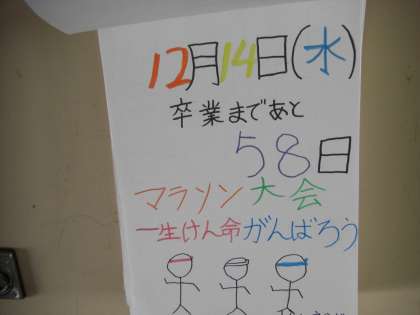 12月14日(水)
卒業まであと
58日
マラソン大会
一生けん命がんばろう